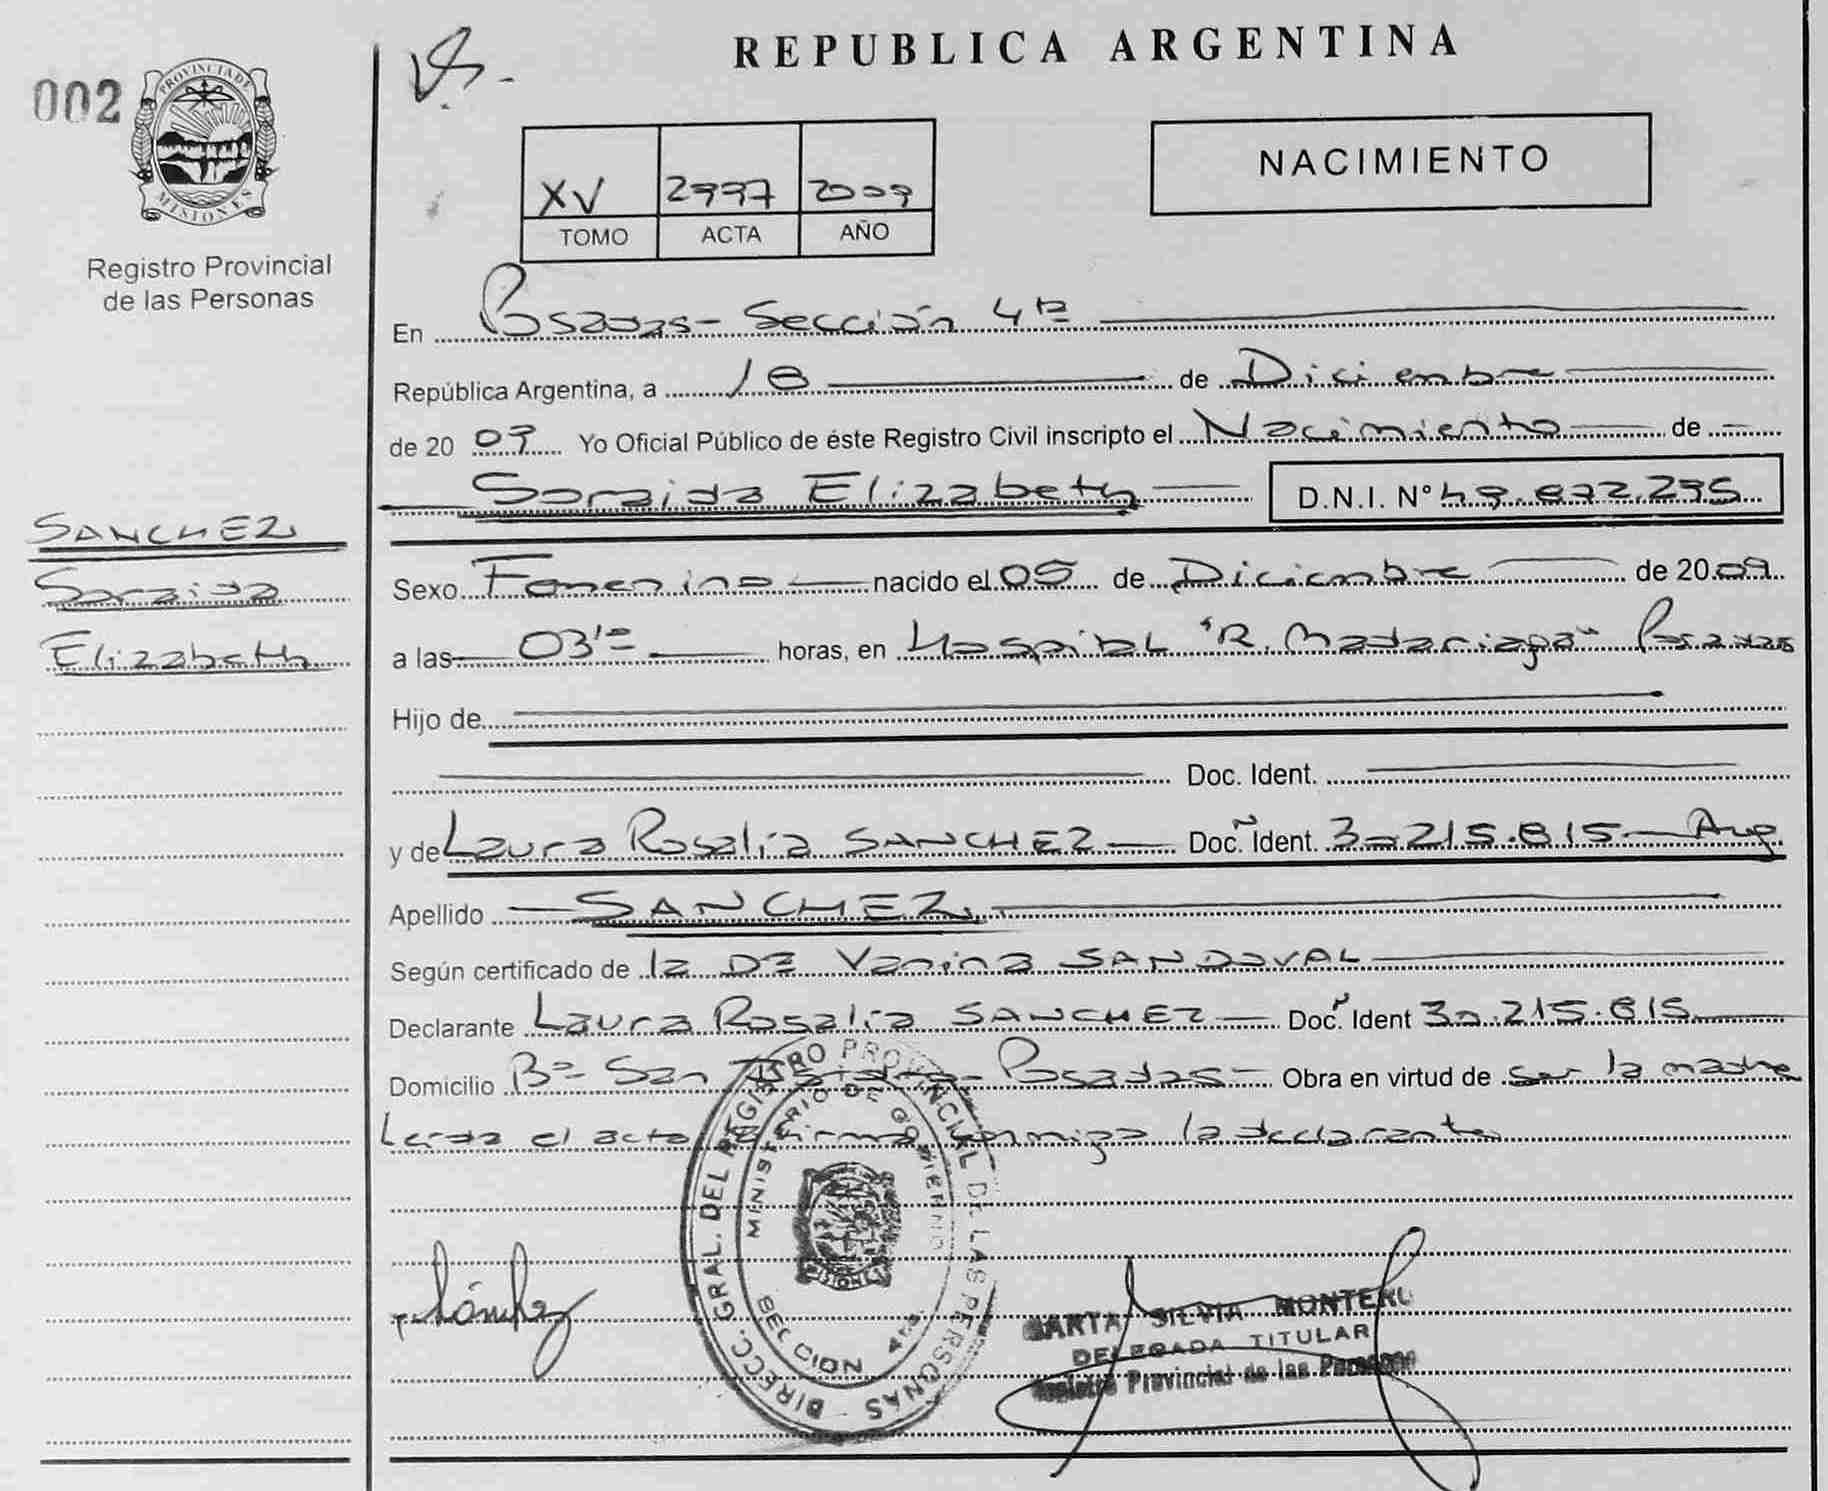 REPUBLICA ARGENTINA
002
PROVINCIA DE
MISIONES
Registro Provincial
de las Personas
NACIMIENTO
XV 2997 2009
TOMO ACTA AÑO
En Posadas - Sección 4ta
República Argentina, a 18 de Diciembre
de 20 09 Yo Oficial Público de éste Registro Civil inscripto el Nacimiento de
Soraida Elizabeth D.N.I. N° 49.672.295
SANCHEZ
Soraida
Elizabeth
Sexo Femenino nacido el 05 de Diciembre de 20 09
a las 03 horas, en Hospital "R. Madariaga" Posadas
Hijo de
Doc. Ident.
y de Laura Rosalia SANCHEZ Doc. Ident. 30.215.815 - Arg
Apellido SANCHEZ
Según certificado de la Dra Vanina SANDOVAL
Declarante Laura Rosalia SANCHEZ Doc. Ident 30.215.815
Domicilio Bo San Posadas Obra en virtud de ser la madre
Leida el acta la firma conmigo la declarante
DIRECC. GRAL. DEL REGISTRO PROVINCIAL DE LAS PERSONAS
MINISTERIO DE GOBIERNO
MISIONES
SECCION 4ta
Sánchez
MARTA SILVIA MONTERO
DELEGADA TITULAR
Registro Provincial de las Personas